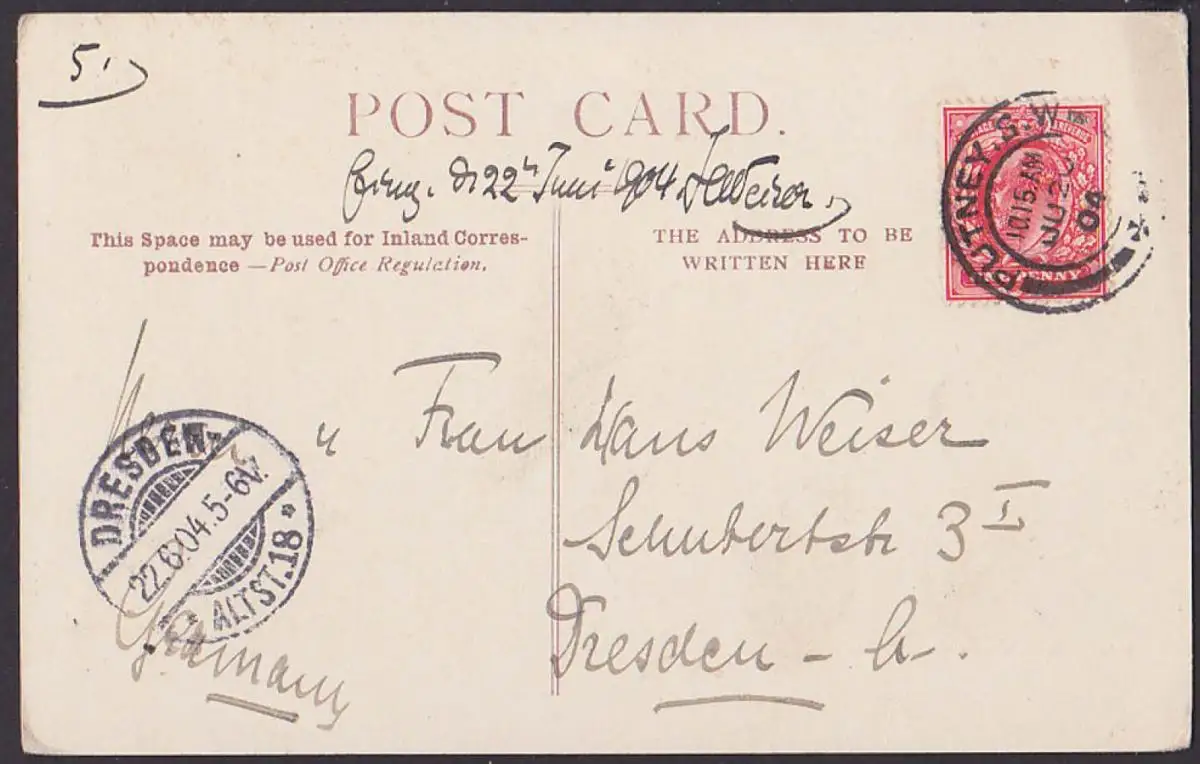 5.
POST CARD.
den 22ⁿ Juni 1904 Weiser
This Space may be used for Inland Corres-
pondence — Post Office Regulation.
THE ADDRESS TO BE
WRITTEN HERE
PUTNEY. S.W
10.15 AM
JU 20
04
PENNY
u Frau Hans Weiser
Schubertstr 3 I
Dresden - A.
Germany
DRESDEN-
22.6.04.5-6V.
ALTST.18